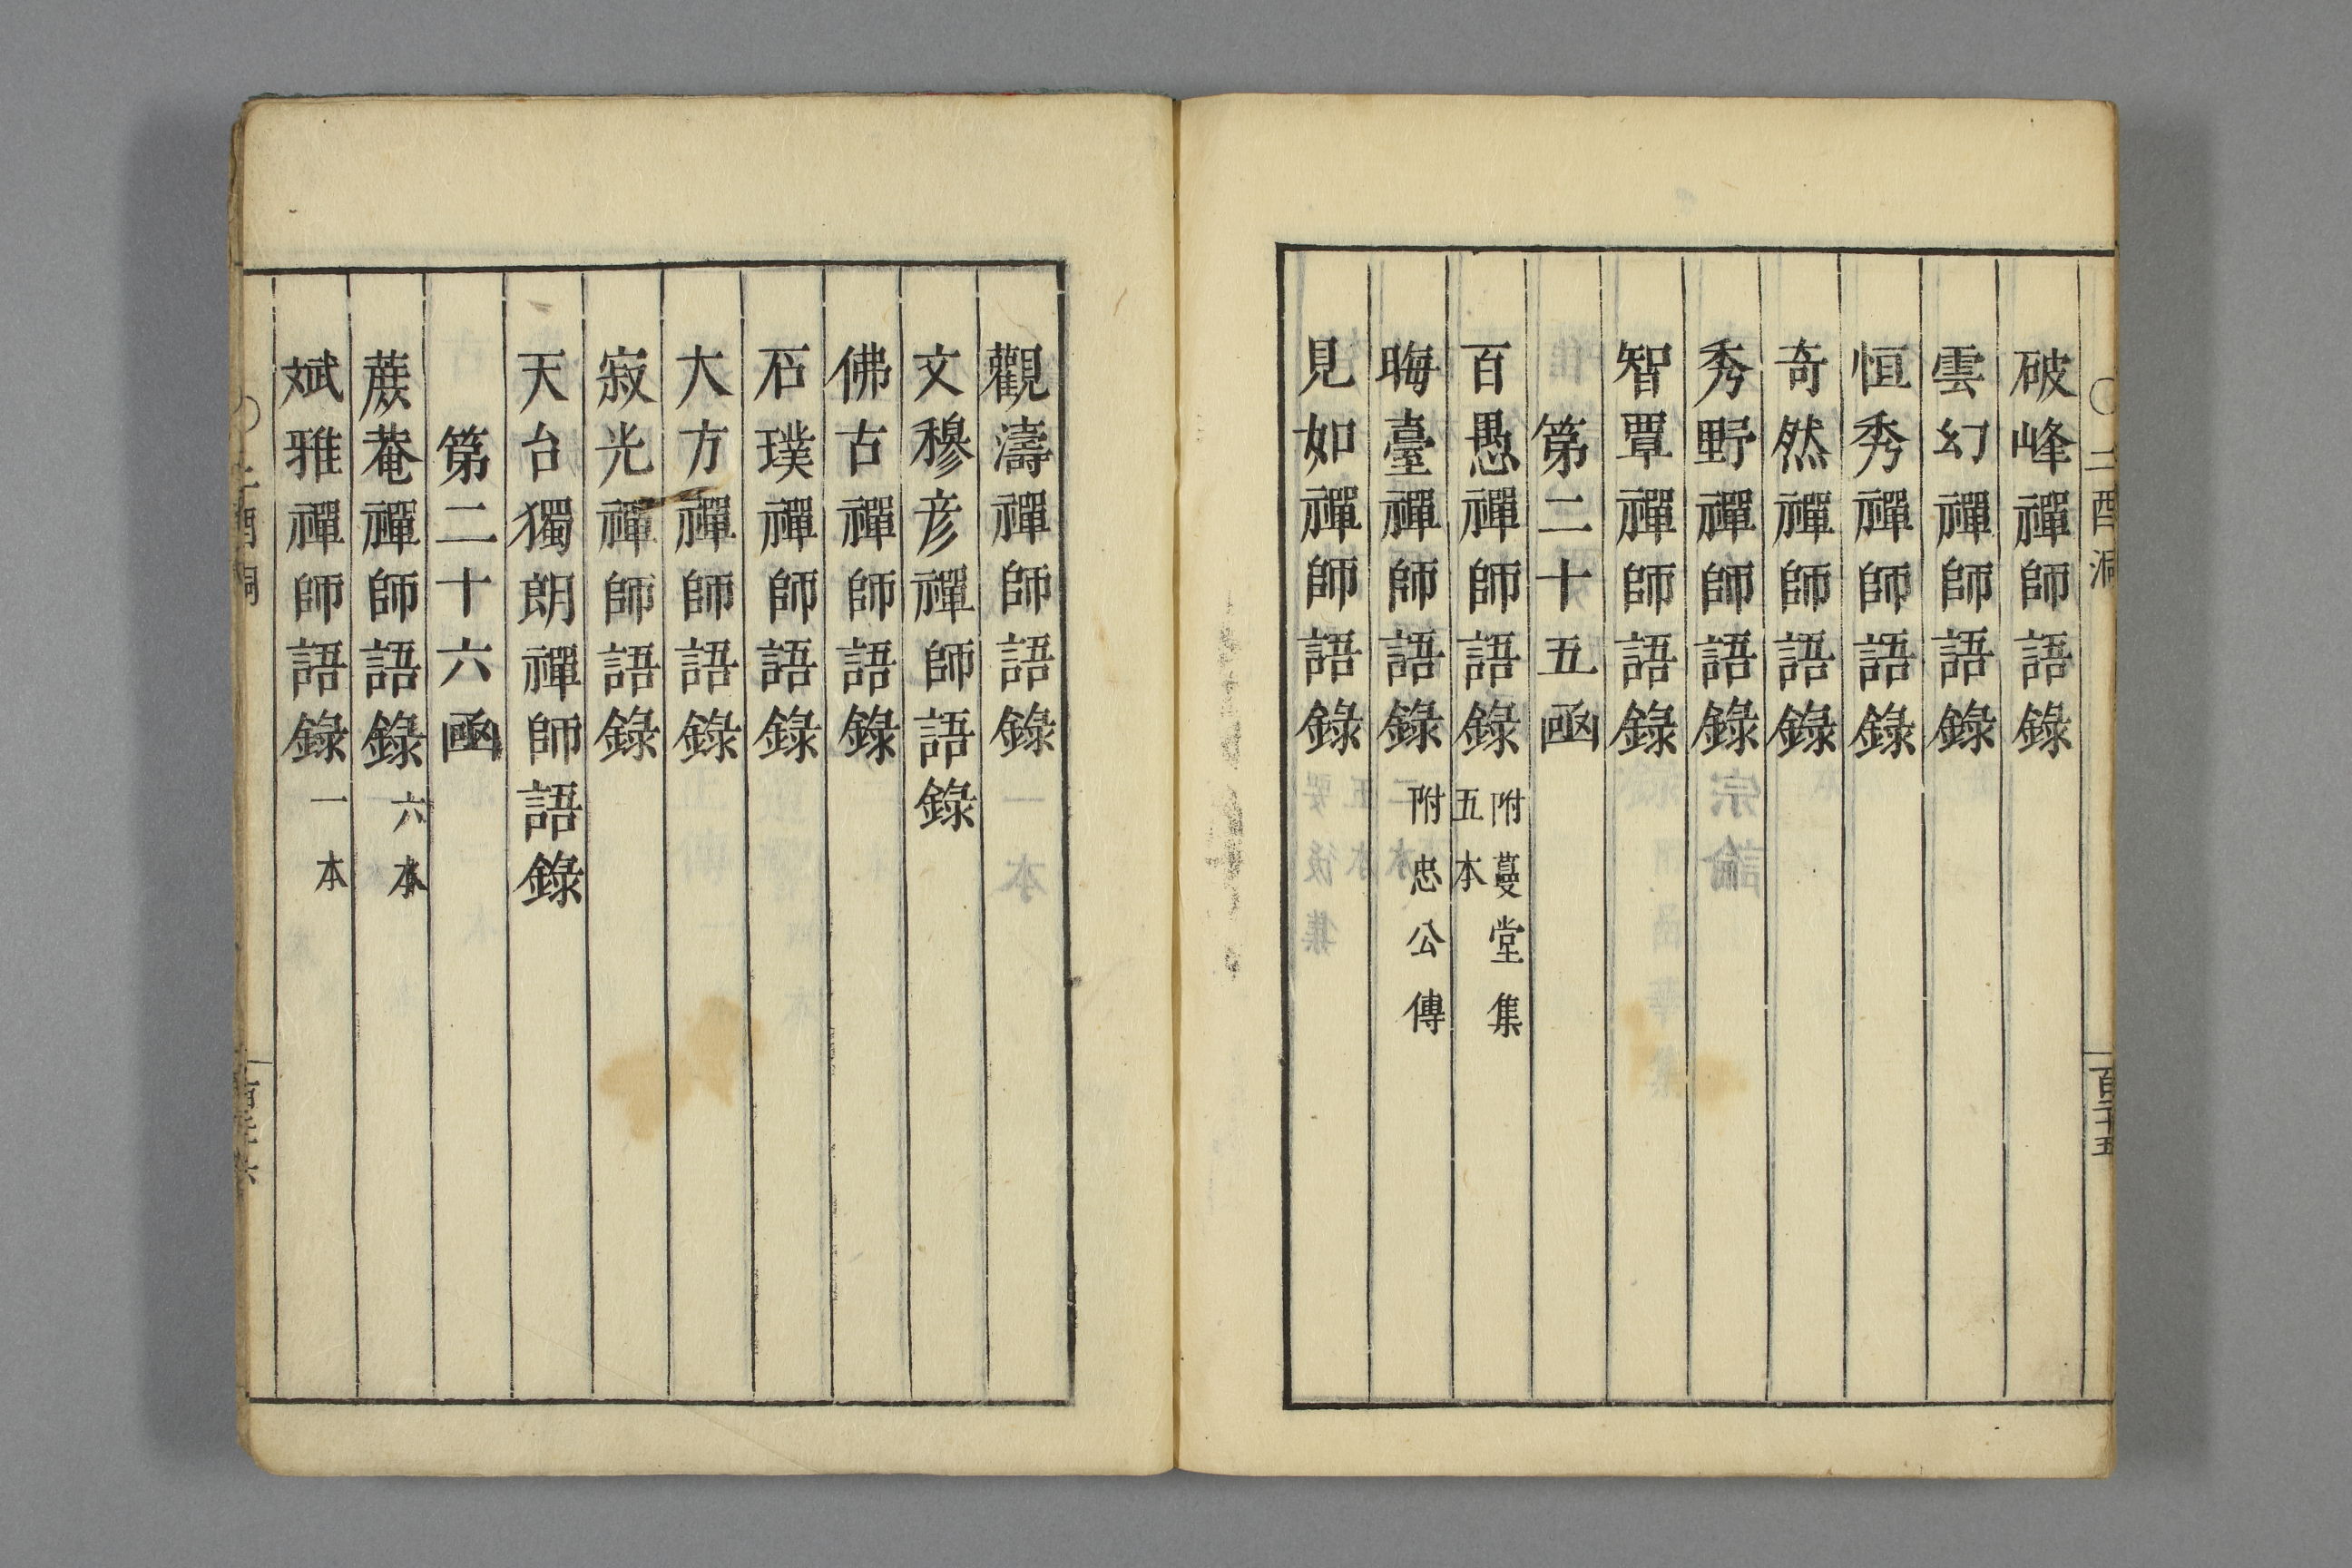 二酉洞
一百二十五
破峰禪師語錄
雲幻禪師語錄
恒秀禪師語錄
奇然禪師語錄
秀野禪師語錄
智覃禪師語錄
第二十五函
百愚禪師語錄 附蔓堂集 五本
晦臺禪師語錄 附忠公傳
見如禪師語錄
觀濤禪師語錄
文穆彦禪師語錄
佛古禪師語錄
石璞禪師語錄
大方禪師語錄
寂光禪師語錄
天台獨朗禪師語錄
第二十六函
蔗菴禪師語錄 六本
斌雅禪師語錄 一本